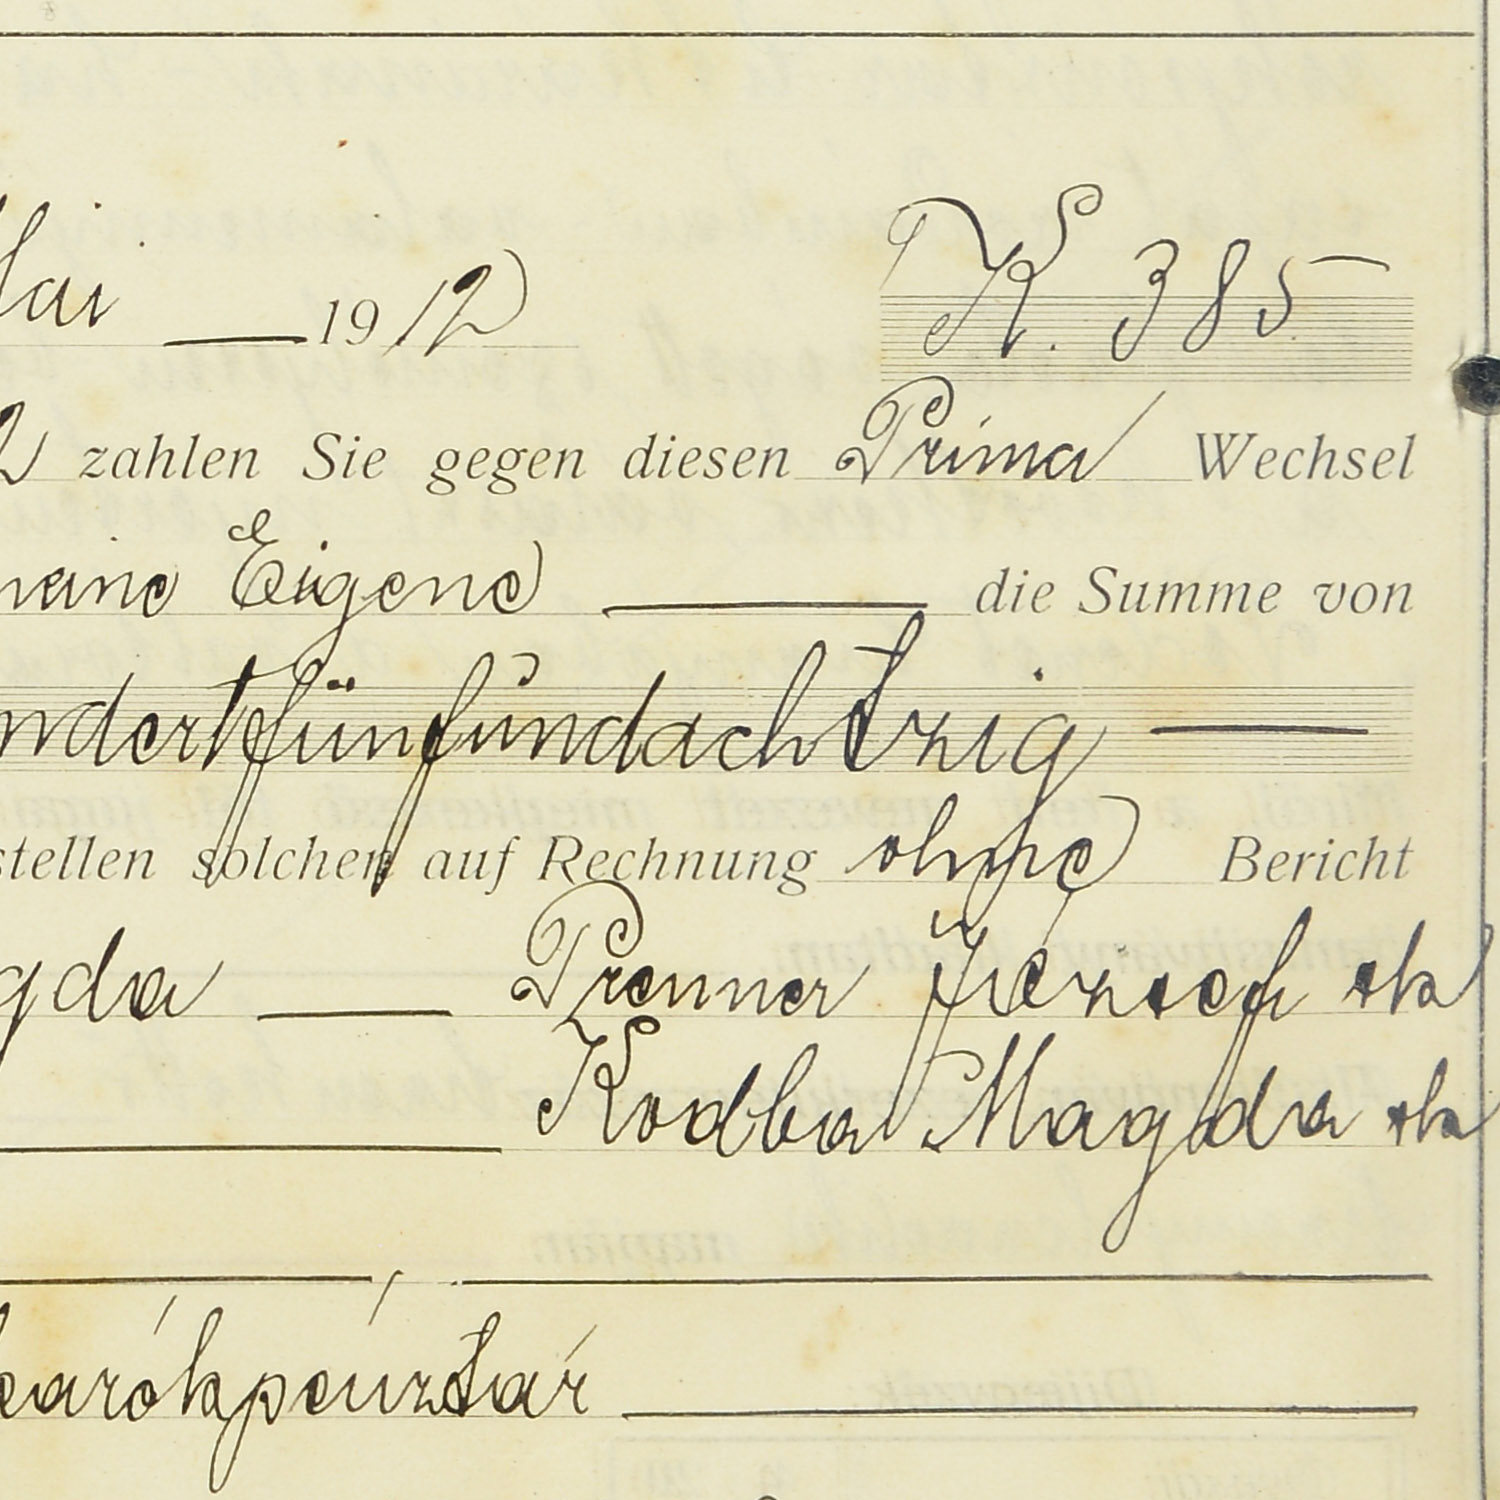 Mai — 1912 K. 385 —
2 zahlen Sie gegen diesen Prima Wechsel
meine Eigene — die Summe von
ndertfünfundachtzig —
stellen solchen auf Rechnung ohne Bericht
gda — Prenner József sk
Kodba Magda sk
karókpénztár —